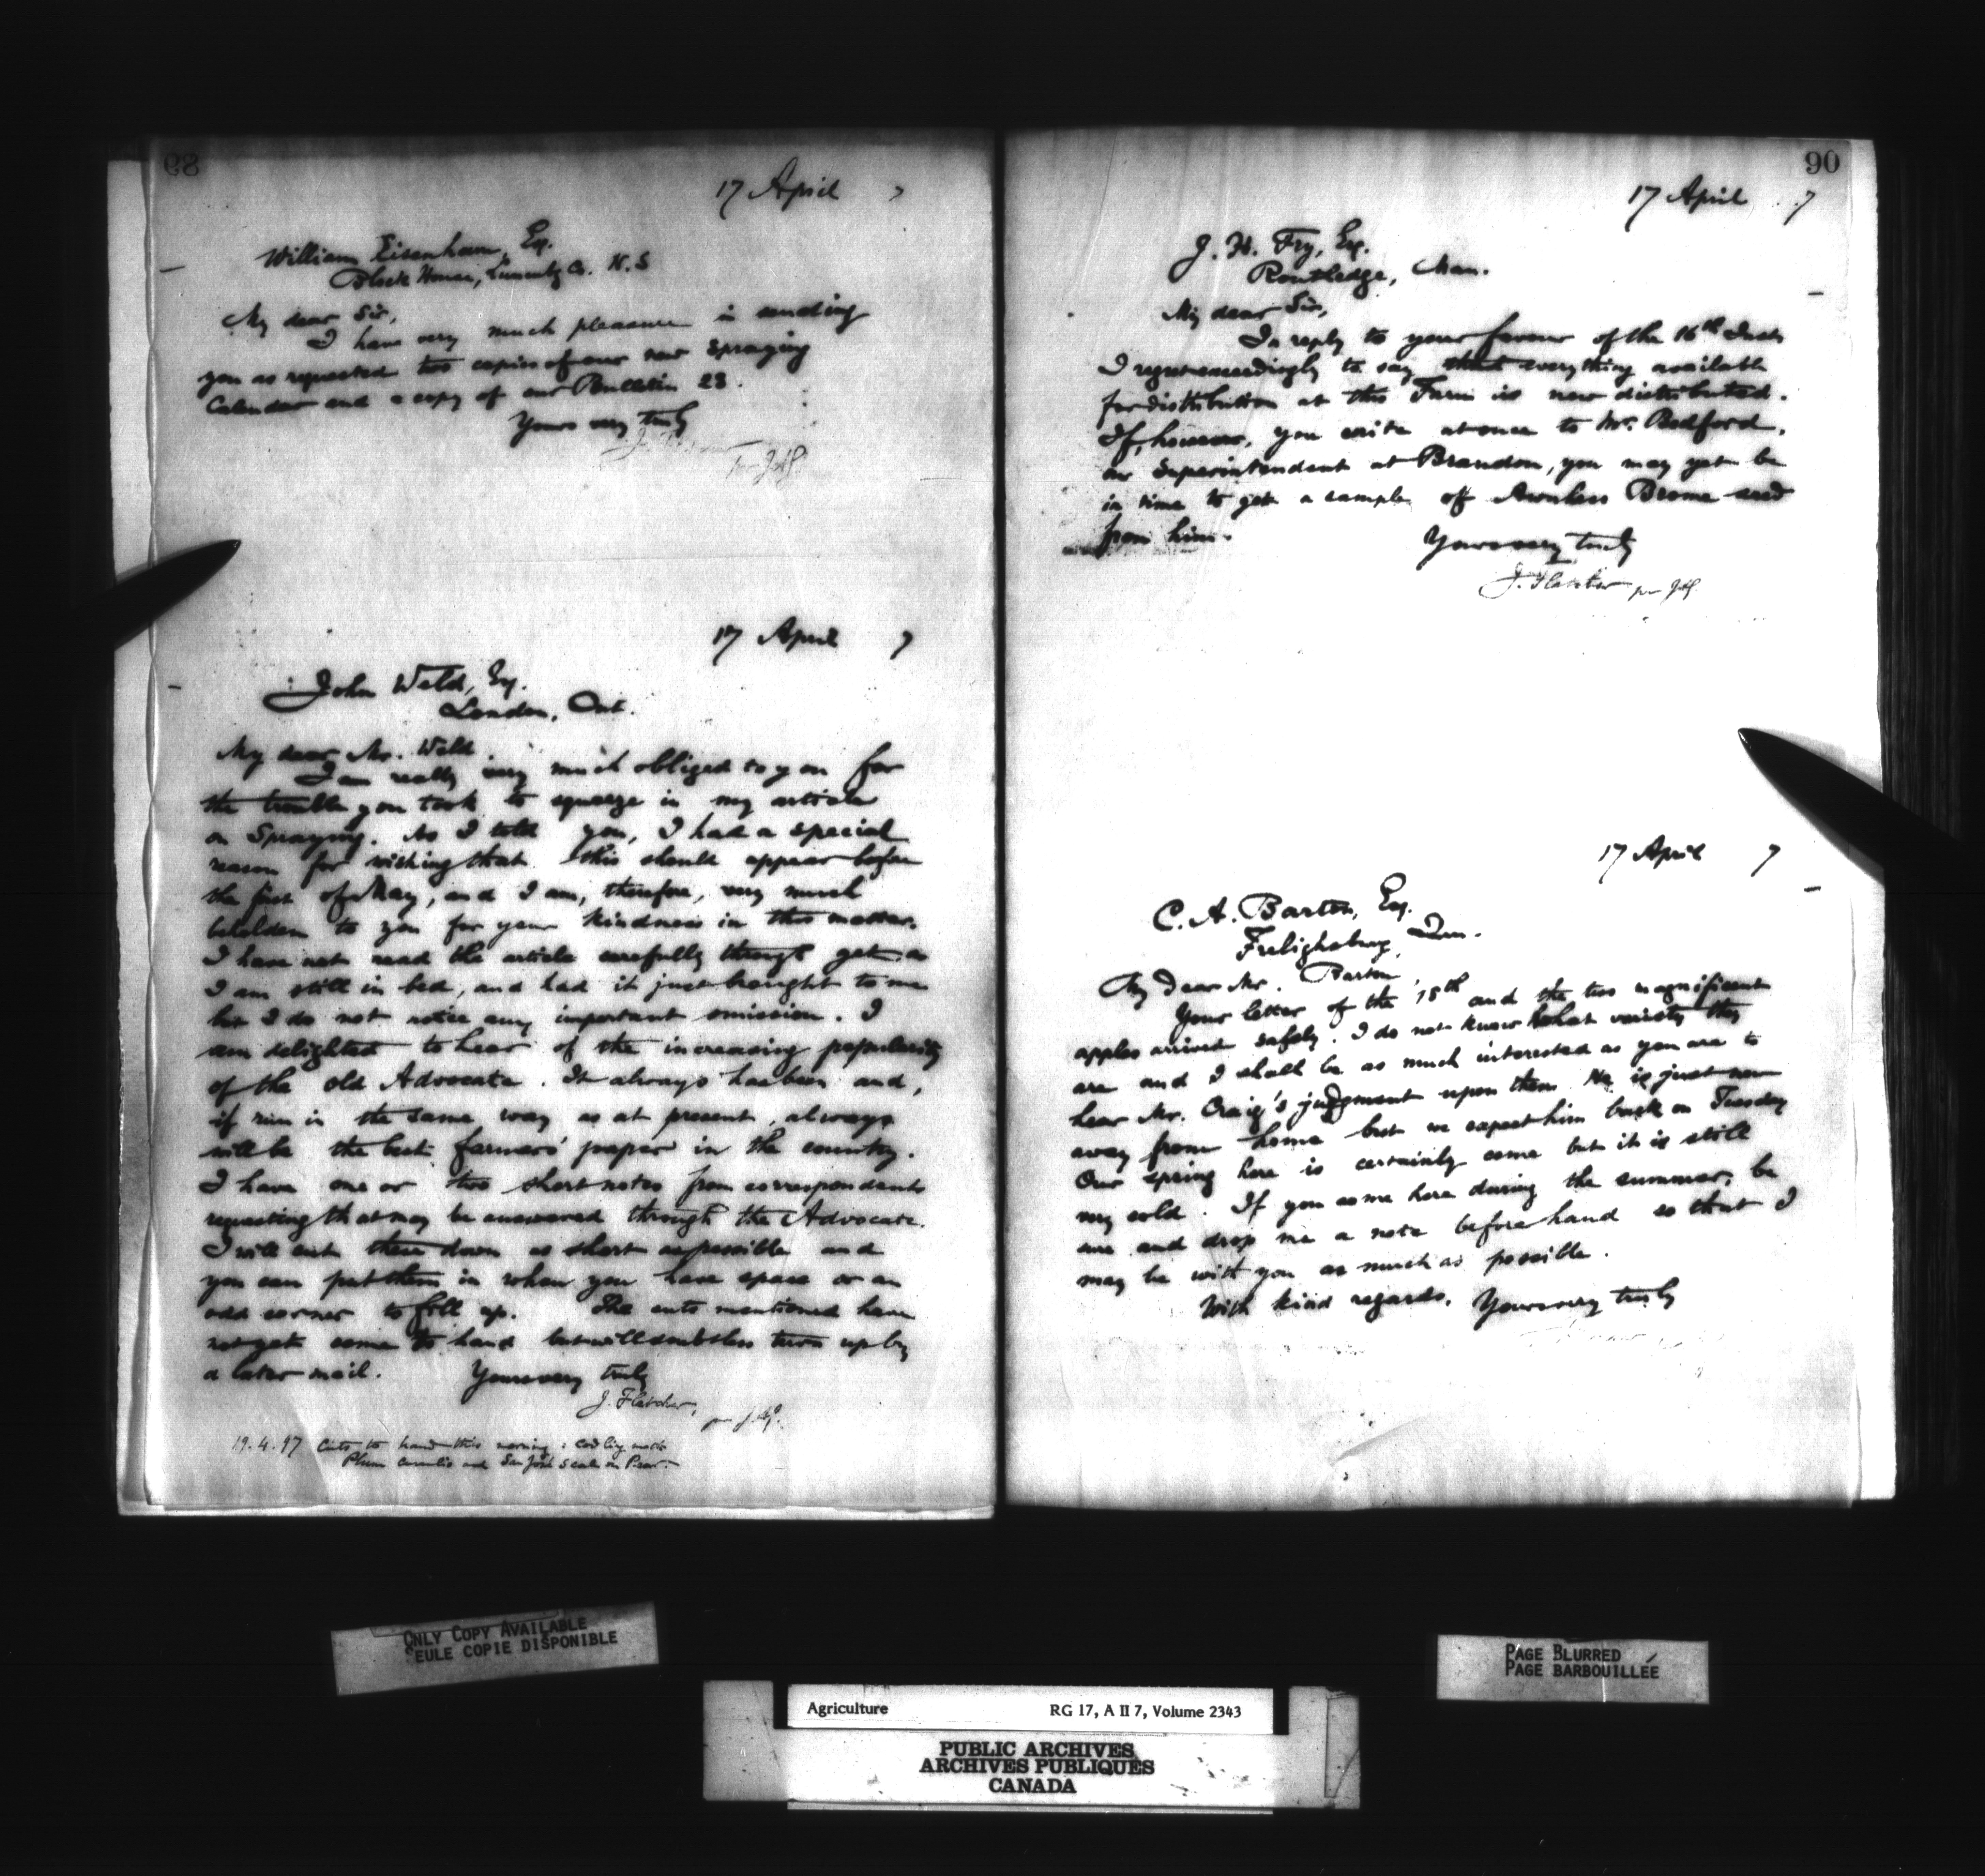 89
17 April 7
William Eisenhaur, Esq.
Block House, Lunenbg Co. N.S
My dear Sir,
I have very much pleasure in sending
you as requested two copies of our new Spraying
Calendar and a copy of our Bulletin 23.
Yours very truly
17 April 7
John Weld, Esq.
London, Ont.
My dear Mr. Weld
I am really very much obliged to you for
the trouble you took to squeeze in my article
on Spraying. As I told you, I had a special
reason for wishing that this should appear before
the first of May, and I am, therefore, very much
beholden to you for your kindness in this matter.
I have not read the article carefully through yet as
I am still in bed, and had it just brought to me
but I do not notice any important omission. I
am delighted to hear of the increasing popularity
of the old Advocate. It always has been and,
if run in the same way as at present, always
will be the best farmers' paper in the country.
I have one or two short notes from correspondents
requesting that may be answered through the Advocate.
I will cut them down as short as possible and
you can put them in when you have space or an
odd corner to fill up. The cuts mentioned have
not yet come to hand but will doubtless turn up by
a later mail. Yours very truly
J. Fletcher,
19.4.97 Cuts to hand this morning: Codling moth
Plum Curculio and San José Scale on Pear.
90
17 April 7
J. H. Fry, Esq.
Routledge, Man.
My dear Sir,
In reply to your favour of the 16th Inst
I regret exceedingly to say that everything available
for distribution at this Farm is now distributed.
If, however, you write at once to Mr. Bedford,
our Superintendent at Brandon, you may yet be
in time to get a sample of Awnless Brome seed
from him.
Yours very truly
J. Fletcher per
17 April 7
C. A. Barton, Esq.
Frelighsburg, Que.
My dear Mr. Barton,
Your letter of the 15th and the two magnificent
apples arrived safely. I do not know what variety they
are and I shall be as much interested as you are to
hear Mr. Craig's judgment upon them. He is just now
away from home but we expect him back on Tuesday
Our spring here is certainly come but it is still
very cold. If you come here during the summer, be
sure and drop me a note before hand so that I
may be with you as much as possible.
With kind regards, Yours very truly
ONLY COPY AVAILABLE
SEULE COPIE DISPONIBLE
PAGE BLURRED
PAGE BARBOUILLÉE
Agriculture RG 17, A II 7, Volume 2343
PUBLIC ARCHIVES
ARCHIVES PUBLIQUES
CANADA